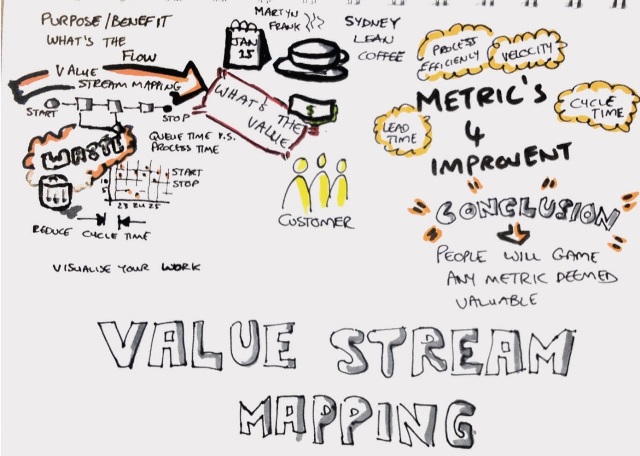 PURPOSE/BENEFIT
WHAT'S THE
FLOW
VALUE
STREAM MAPPING
START
STOP
QUEUE TIME V.S.
PROCESS TIME
WASTE
START
STOP
23 24 25
REDUCE CYCLE TIME
VISUALISE YOUR WORK
MARTYN
FRANK
JAN
25
SYDNEY
LEAN
COFFEE
WHAT'S THE
VALUE
$
CUSTOMER
PROCESS
EFFICIENCY
VELOCITY
METRIC'S
4
IMPROVENT
LEAD
TIME
CYCLE
TIME
CONCLUSION
PEOPLE WILL GAME
ANY METRIC DEEMED
VALUABLE
VALUE STREAM
MAPPING